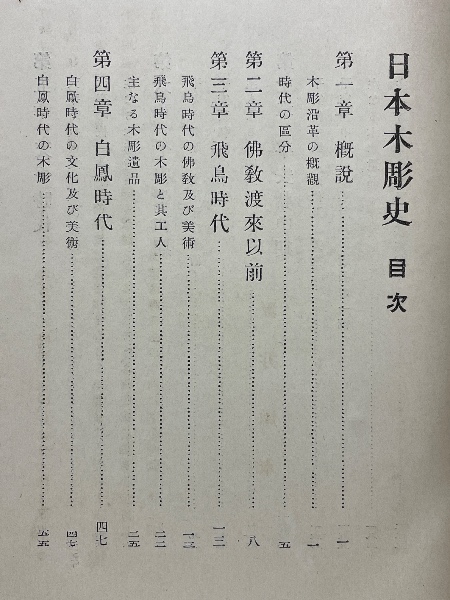 日本木彫史 目次
第一章 概說 一
木彫沿革の槪觀 一
時代の區分 五
第二章 佛敎渡來以前 八
第三章 飛鳥時代 一三
飛鳥時代の佛敎及び美術 一三
飛鳥時代の木彫と其工人 二二
主なる木彫遺品 二五
第四章 白鳳時代 四七
白鳳時代の文化及び美術 四七
白鳳時代の木彫 五五